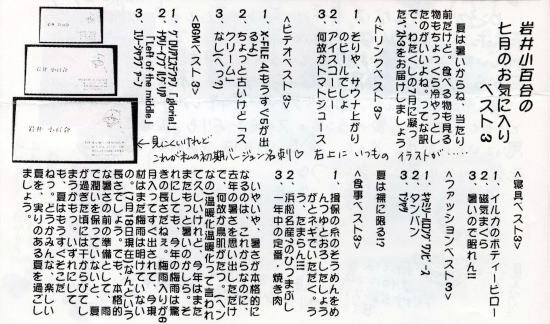 岩井小百合の
七月のお気に入り
ベスト3
夏は暑いからね、当たり
前だけど。食べる物も見る
物もちょっぴり冷やっとし
たのがいいよね。ってな訳
で、わたくしの7月に凝っ
た、ベスト3をお届けしましょう
<ドリンクベスト3>
1、そりゃ、サウナ上がり
のビールでしょ
2、アイスコーヒー
3、何故かトマトジュース
<ビデオベスト3>
1、X-FILE 4(もうすぐ5が出るっ)
2、ちょっと古いけど「スクリーム」
3、なし(へっ?)
<BGMベスト3>
1、グロリアエステファン「gloria!」
2、ナタリーインブルーリア
「Left of the middle」
3、スリーシクスティ アーン
岩井 小百合
岩井 小百合
岩井 小百合
←見にくいけれど
これが私の初期バージョン名刺♡
右上に いつもの イラストが……
<寝具ベスト3>
1、イルカのボディーピロー
2、磁気まくら
3、暑いので眠れん!
<ファッションベスト3>
1、キャミソールロング ワンピース
2、タンパン
3、Tシャツ
夏は裸に限る!?
<食事ベスト3>
1、揖保の糸のそうめんをめ
んつゆとおろしたしょう
がとネギでいただく。う
う、たまらん!!!
2、浜松名産?のひつまぶし
3、一年中の定番、焼き肉
いやいや、暑さが本格的に
なるのは、これからなのに、
去年の暑さを思い出しただけ
で、何故か鳥肌がたつ。(ヘン)
なの)温暖化温暖化って言われ
て久しいけれど、今年はまた
またもっと暑いのかしら。そ
れにしても、今年の梅雨は驚
きの長さだねぇ。梅雨入りが6
月入ってすぐ出されて、今現
在はまだ梅雨は明けていない
(7月18日現在)なんという
長さでしょう。でも、本格的
な暑さの前の準備として、雨
で潤いを保っていないと、夏
が過ぎた頃には干からびてし
まうかも。いずれにして
も、夏はもうすぐそこだ
ねっ。どうかみんな、楽しい
夏を、実りのある夏を過ごし
ましょう。